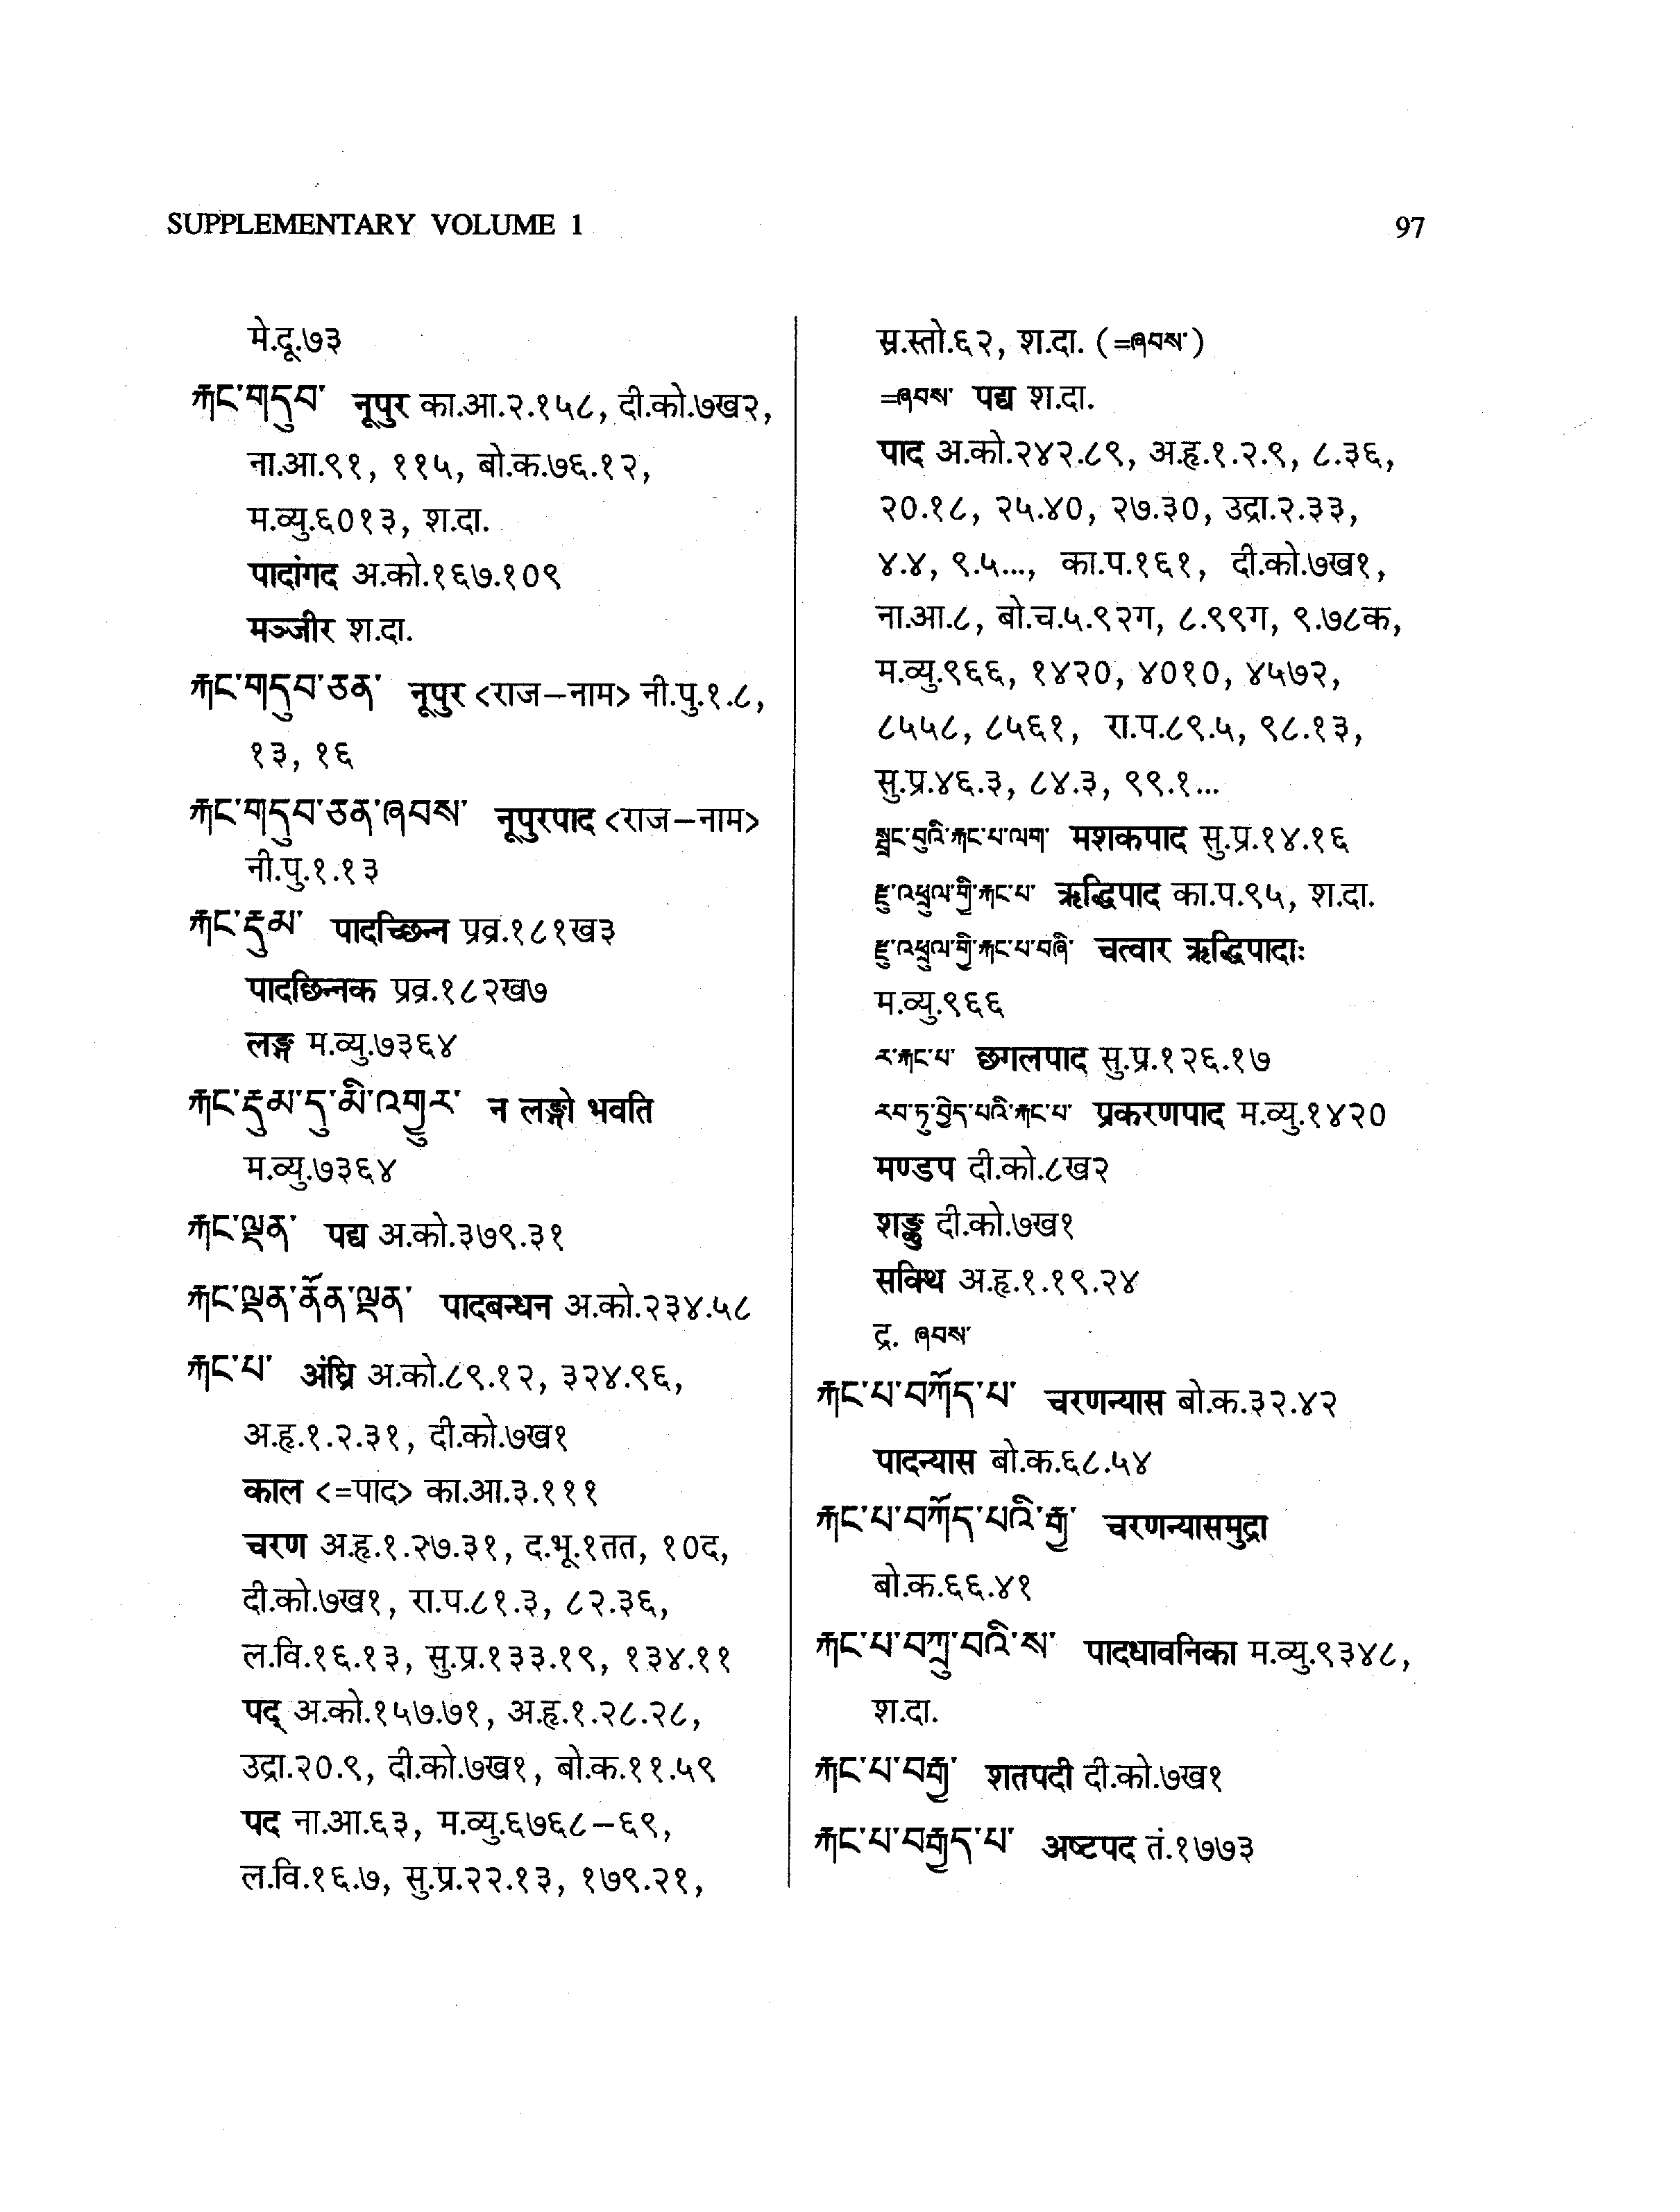 SUPPLEMENTARY VOLUME 1
97
मे.दू.७३
རྐང་གདུབ་ नूपुर का.आ.२.१५८, दी.को.७ख२,
ना.आ.९१, ११५, बो.क.७६.१२,
म.व्यु.६०१३, श.दा.
पादांगद अ.को.१६७.१०९
मञ्जीर श.दा.
རྐང་གདུབ་ཅན་ नूपुर <राज-नाम> नी.पु.१.८,
१३, १६
རྐང་གདུབ་ཅན་ཞབས་ नूपुरपाद <राज-नाम>
नी.पु.१.१३
རྐང་རྡུམ་ पादच्छिन्न प्रव्र.१८१ख३
पादछिन्नक प्रव्र.१८२ख७
लङ्ग म.व्यु.७३६४
རྐང་རྡུམ་དུ་མི་འགྱུར་ न लङ्गो भवति
म.व्यु.७३६४
རྐང་ལྡན་ पद्य अ.को.३७९.३१
རྐང་ལྡན་ནོན་ལྡན་ पादबन्धन अ.को.२३४.५८
རྐང་པ་ अंघ्रि अ.को.८९.१२, ३२४.९६,
अ.हृ.१.२.३१, दी.को.७ख१
काल <=पाद> का.आ.३.१११
चरण अ.हृ.१.२७.३१, द.भू.१तत, १०द,
दी.को.७ख१, रा.प.८१.३, ८२.३६,
ल.वि.१६.१३, सु.प्र.१३३.१९, १३४.११
पद् अ.को.१५७.७१, अ.हृ.१.२८.२८,
उद्रा.२०.९, दी.को.७ख१, बो.क.११.५९
पद ना.आ.६३, म.व्यु.६७६८-६९,
ल.वि.१६.७, सु.प्र.२२.१३, १७९.२१,
स्र.स्तो.६२, श.दा. (=ཞབས་)
=ཞབས་ पद्य श.दा.
पाद अ.को.२४२.८९, अ.हृ.१.२.९, ८.३६,
२०.१८, २५.४०, २७.३०, उद्रा.२.३३,
४.४, ९.५..., का.प.१६१, दी.को.७ख१,
ना.आ.८, बो.च.५.९२ग, ८.९९ग, ९.७८क,
म.व्यु.९६६, १४२०, ४०१०, ४५७२,
८५५८, ८५६१, रा.प.८९.५, ९८.१३,
सु.प्र.४६.३, ८४.३, ९९.१...
སྦྲང་བུའི་རྐང་པ་ལག་ मशकपाद सु.प्र.१४.१६
རྫུ་འཕྲུལ་གྱི་རྐང་པ་ ऋद्धिपाद का.प.९५, श.दा.
རྫུ་འཕྲུལ་གྱི་རྐང་པ་བཞི་ चत्वार ऋद्धिपादाः
म.व्यु.९६६
ར་རྐང་པ་ छगलपाद सु.प्र.१२६.१७
རབ་ཏུ་བྱེད་པའི་རྐང་པ་ प्रकरणपाद म.व्यु.१४२०
मण्डप दी.को.८ख२
शङ्कु दी.को.७ख१
सक्थि अ.हृ.१.१९.२४
द्र. ཞབས་
རྐང་པ་བཀོད་པ་ चरणन्यास बो.क.३२.४२
पादन्यास बो.क.६८.५४
རྐང་པ་བཀོད་པའི་རྒྱ་ चरणन्यासमुद्रा
बो.क.६६.४१
རྐང་པ་བཀྲུ་བའི་ས་ पादधावनिका म.व्यु.९३४८,
श.दा.
རྐང་པ་བརྒྱ་ शतपदी दी.को.७ख१
རྐང་པ་བརྒྱད་པ་ अष्टपद तं.१७७३